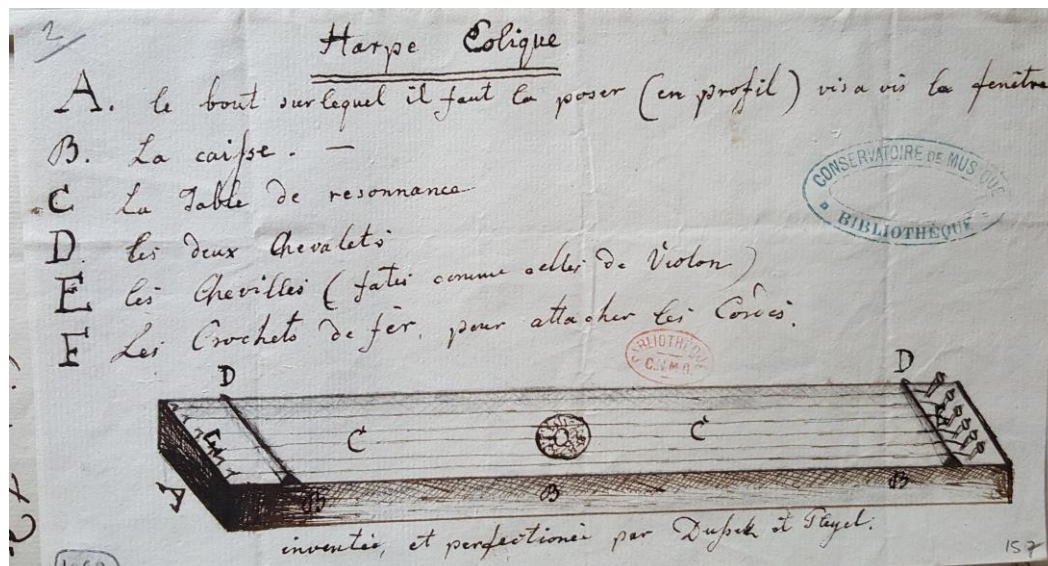 2
Harpe Eolique
A. le bout sur lequel il faut la poser (en profil) vis a vis la fenêtre
B. La caisse. —
C La Table de resonnance
D. les deux Chevalets
E les Chevilles (fates comme celles de Violon)
F Les Crochets de fer, pour attacher les Cordes.
CONSERVATOIRE DE MUSIQUE
BIBLIOTHÈQUE
BIBLIOTHÈQUE
C.N.M.D.
D D
C C
E
F
A B B B
inventée, et perfectionée par Dussek et Pleyel.
157